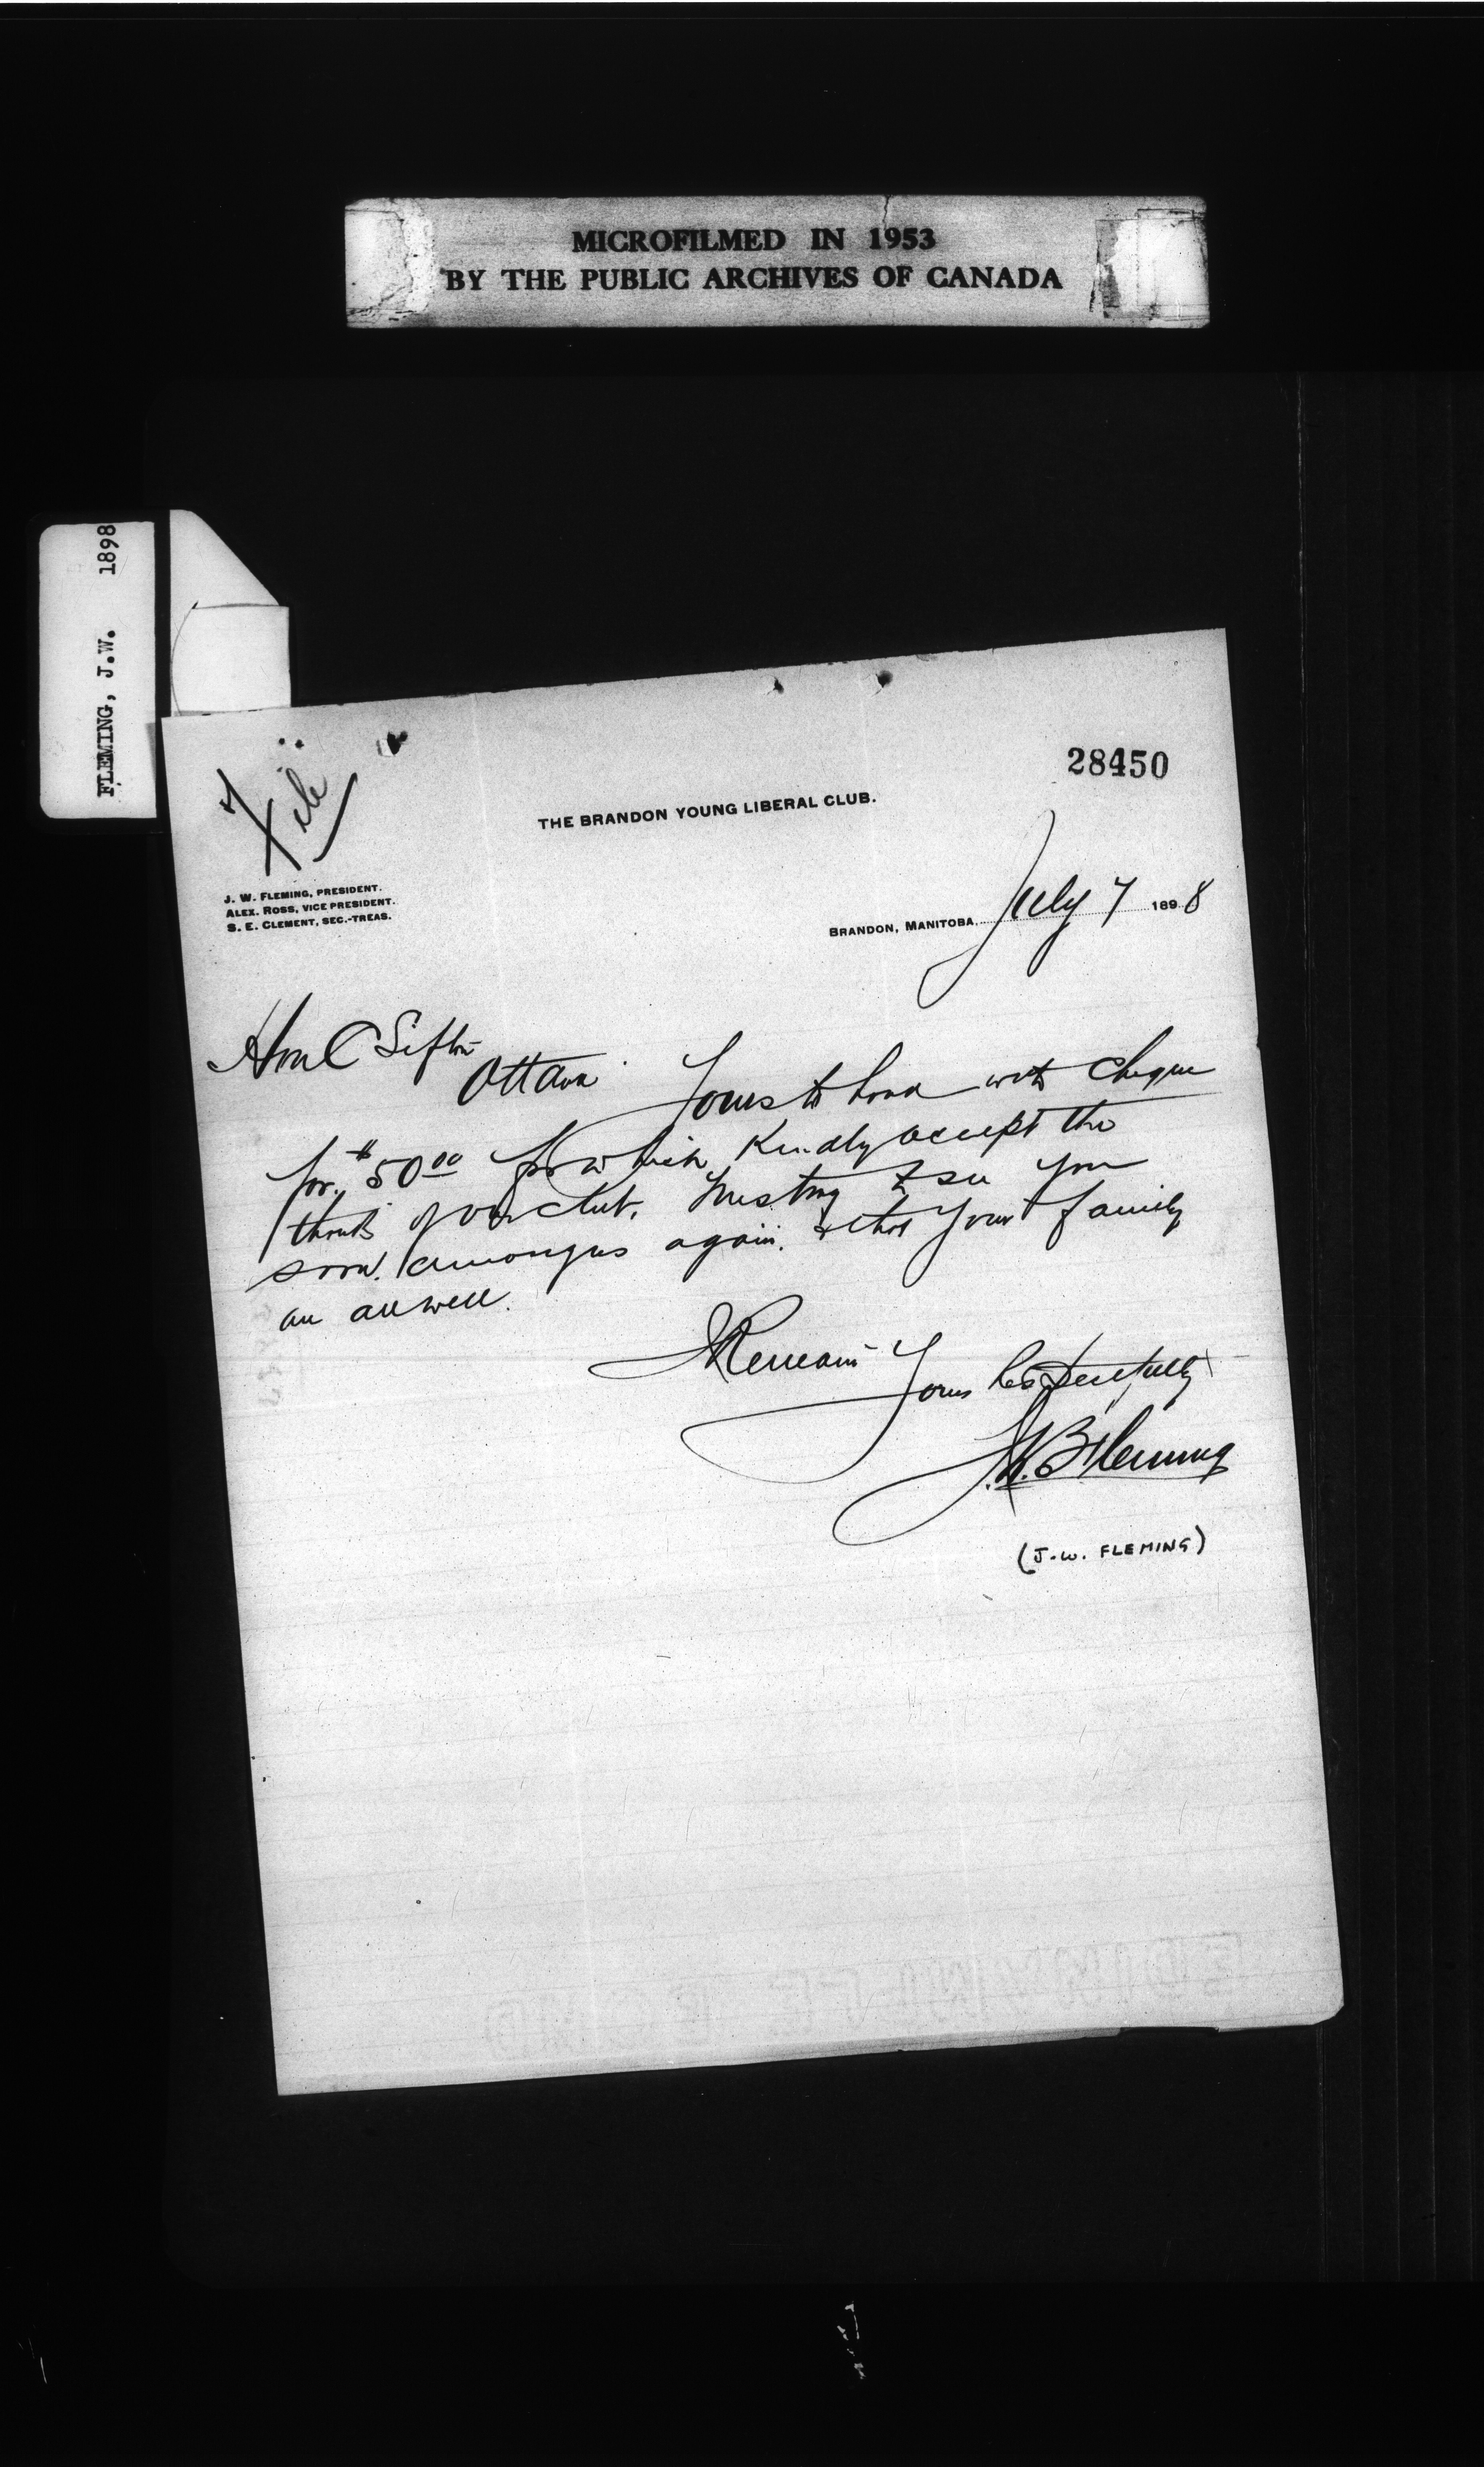 MICROFILMED IN 1953
BY THE PUBLIC ARCHIVES OF CANADA
FLEMING, J.W. 1898
File
28450
THE BRANDON YOUNG LIBERAL CLUB.
J. W. FLEMING, PRESIDENT.
ALEX. ROSS, VICE PRESIDENT.
S. E. CLEMENT, SEC.-TREAS.
BRANDON, MANITOBA, July 7 1898
Hon C Sifton
Ottawa Yours to hand with cheque
for $50 00 for which Kindly accept the
thanks of our club. Trusting to see you
soon amongus again. & that your family
are all well.
I Remain
Yours Respectfully
Fleming
(J.W. FLEMING)